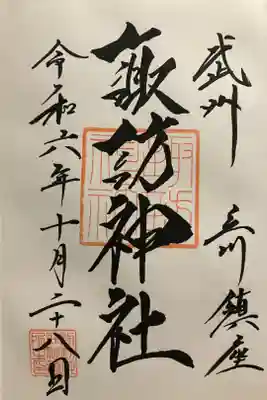 武州 立川鎮座
諏訪神社
令和六年十月二十八日